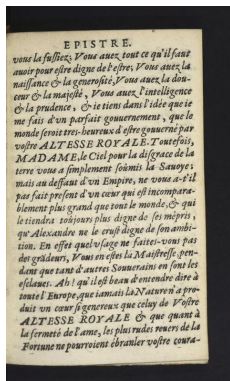 EPISTRE.
vous la fussiez; Vous auez tout ce qu'il faut
auoir pour estre digne de l'estre; Vous auez la
naissance & la generosité, Vous auez la dou-
ceur & la majesté, Vous auez l'intelligence
& la prudence, & ie tiens dans l'idée que ie
me fais d'vn parfait gouuernement, que le
monde seroit tres-heureux d'estre gouuerné par
vostre ALTESSE ROYALE. Toutefois,
MADAME, le Ciel pour la disgrace de la
terre vous a simplement soûmis la Sauoye:
mais au deffaut d'vn Empire, ne vous a-t'il
pas fait present d'vn cœur qui est incompara-
blement plus grand que tout le monde, & qui
le tiendra toûjours plus digne de ses mépris,
qu'Alexandre ne le crust digne de son ambi-
tion. En effet quel vsage ne faites-vous pas
des grãdeurs, Vous en estes la Maistresse, pen-
dant que tant d'autres Souuerains en font les
esclaues. Ah! qu'il est beau d'entendre dire à
toute l'Europe, que iamais la Nature n'a pro-
duit vn cœur si genereux que celuy de Vostre
ALTESSE ROYALE & que quant à
la fermeté de l'ame, les plus rudes reuers de la
Fortune ne pourroient ébranler vostre coura-